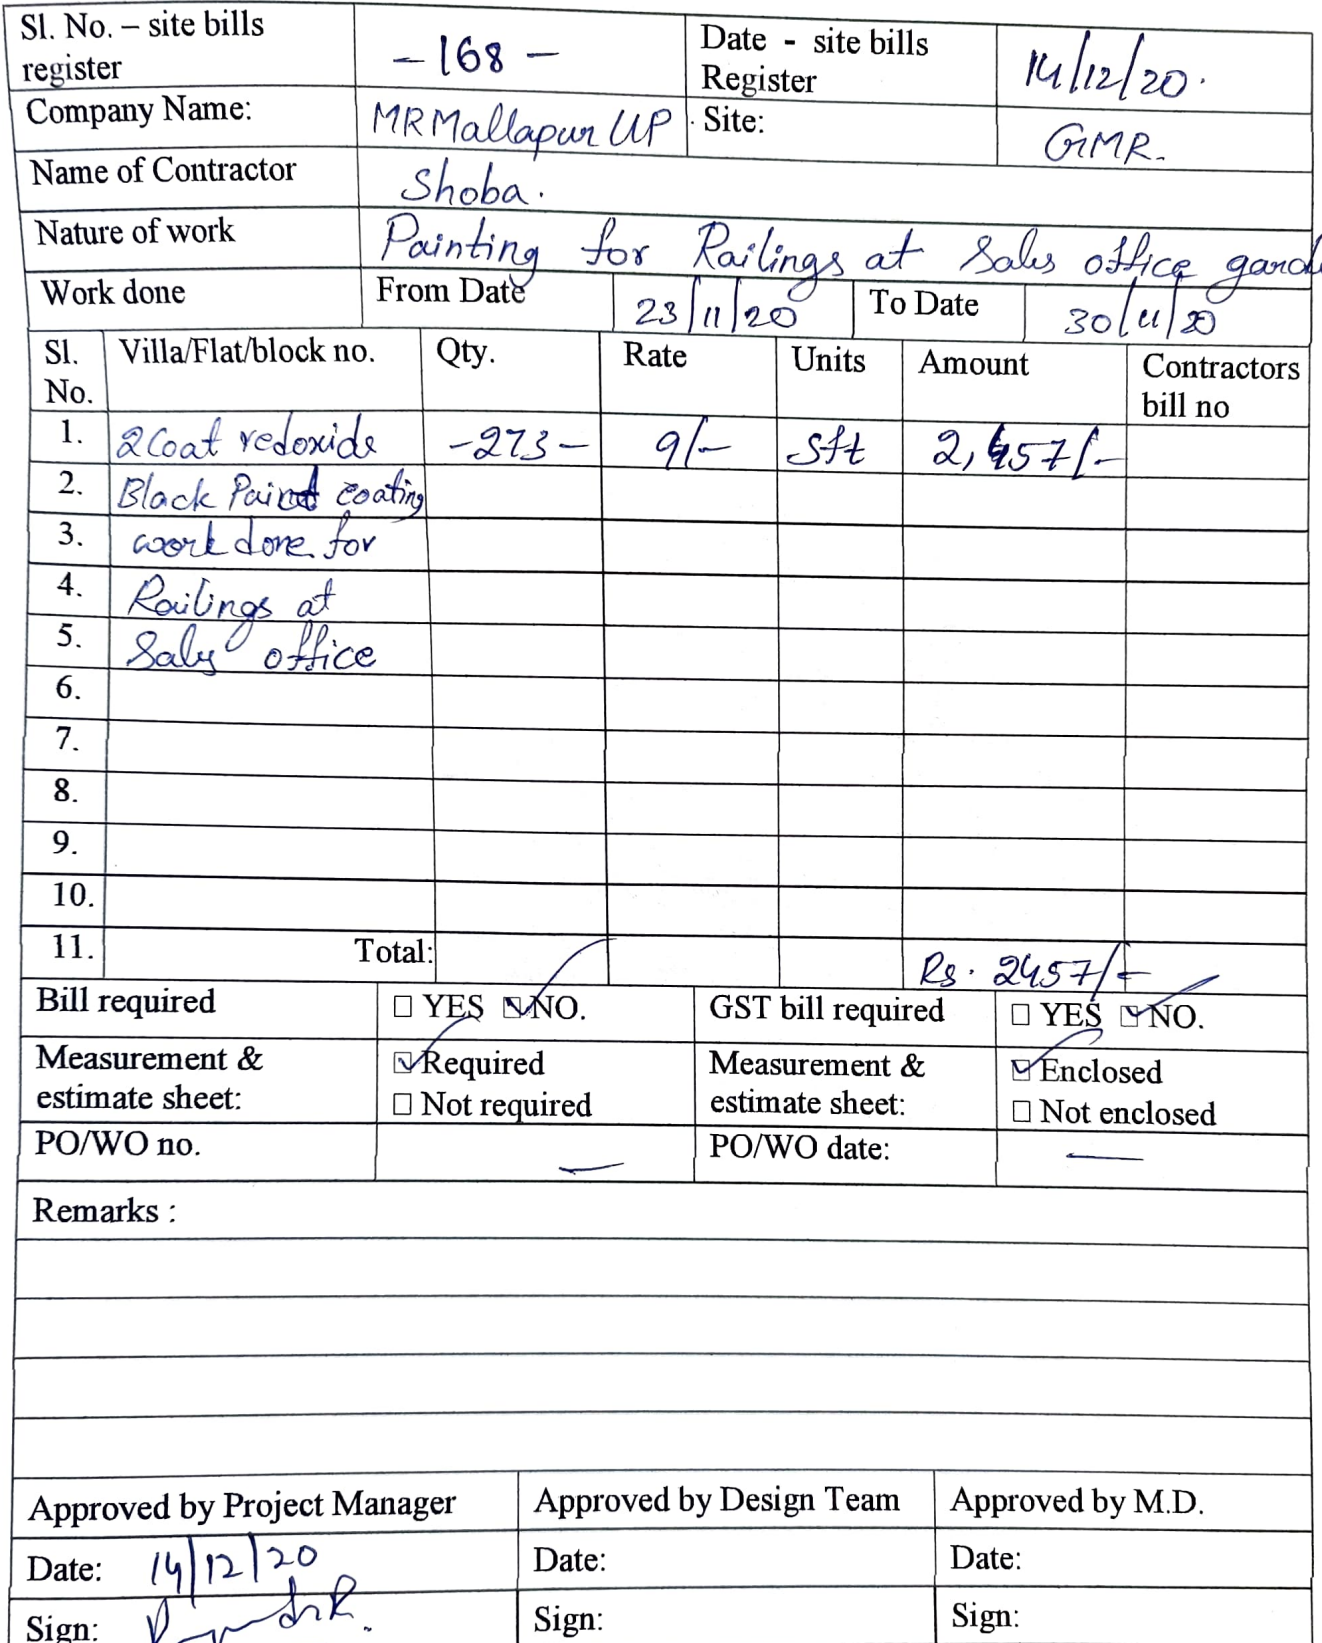 Sl. No. – site bills register -168- Date - site bills Register 14/12/20.
Company Name: MRMallapur LLP Site: GMR.
Name of Contractor Shoba.
Nature of work Painting for Railings at Sales office gard
Work done From Date 23/11/20 To Date 30/11/20
Sl. No. Villa/Flat/block no. Qty. Rate Units Amount Contractors bill no
1. 2 Coat redoxide -273- 9/- sft 2,457/-
2. Black Paint coating
3. work done for
4. Railings at
5. Sales office
6.
7.
8.
9.
10.
11. Total: Rs. 2457/-
Bill required ☐ YES ☑ NO. GST bill required ☐ YES ☑ NO.
Measurement & estimate sheet: ☑ Required ☐ Not required Measurement & estimate sheet: ☑ Enclosed ☐ Not enclosed
PO/WO no. — PO/WO date: —
Remarks :
Approved by Project Manager Approved by Design Team Approved by M.D.
Date: 14/12/20 Date: Date:
Sign: Sign: Sign: